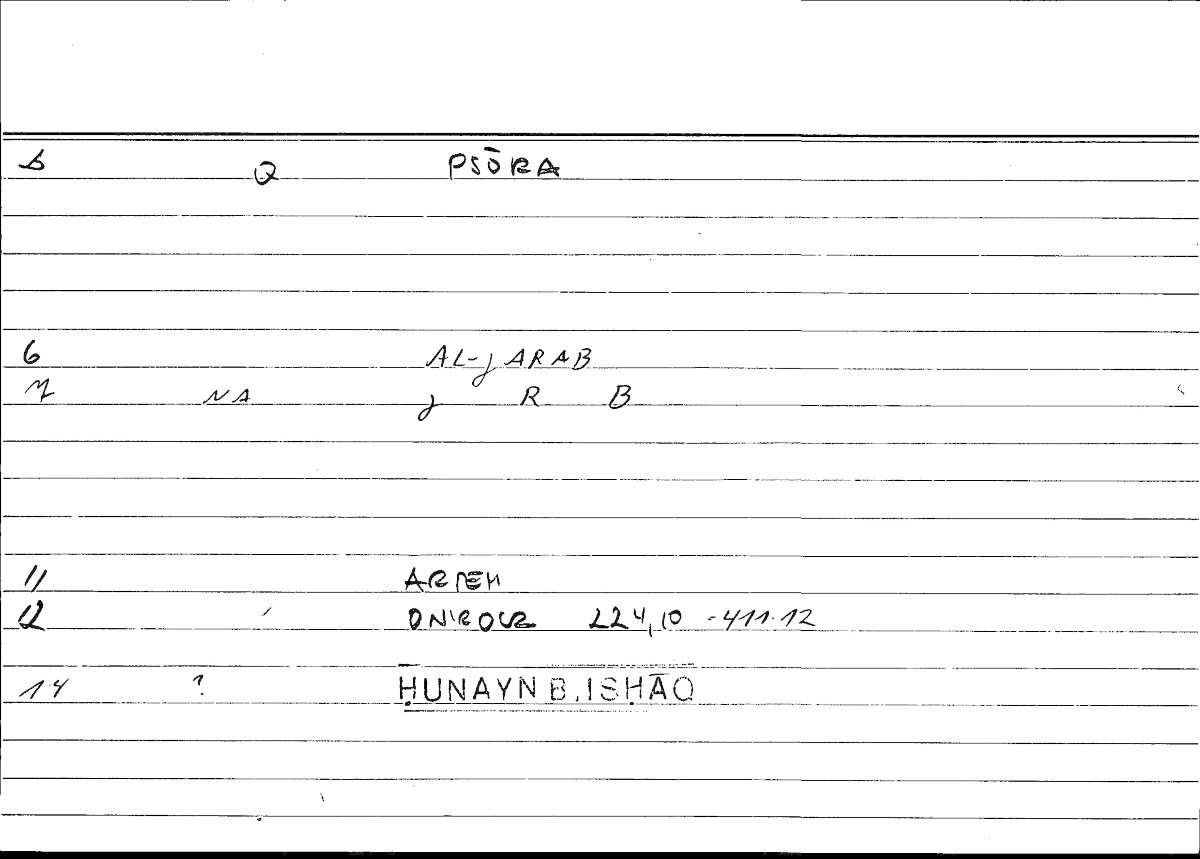 Q PSŌRA
6 AL-JARAB
7 NA J R B
11 ARTEM
12 ONIROCR 224,10 -411.12
14 ? ḤUNAYN B. ISḤĀQ